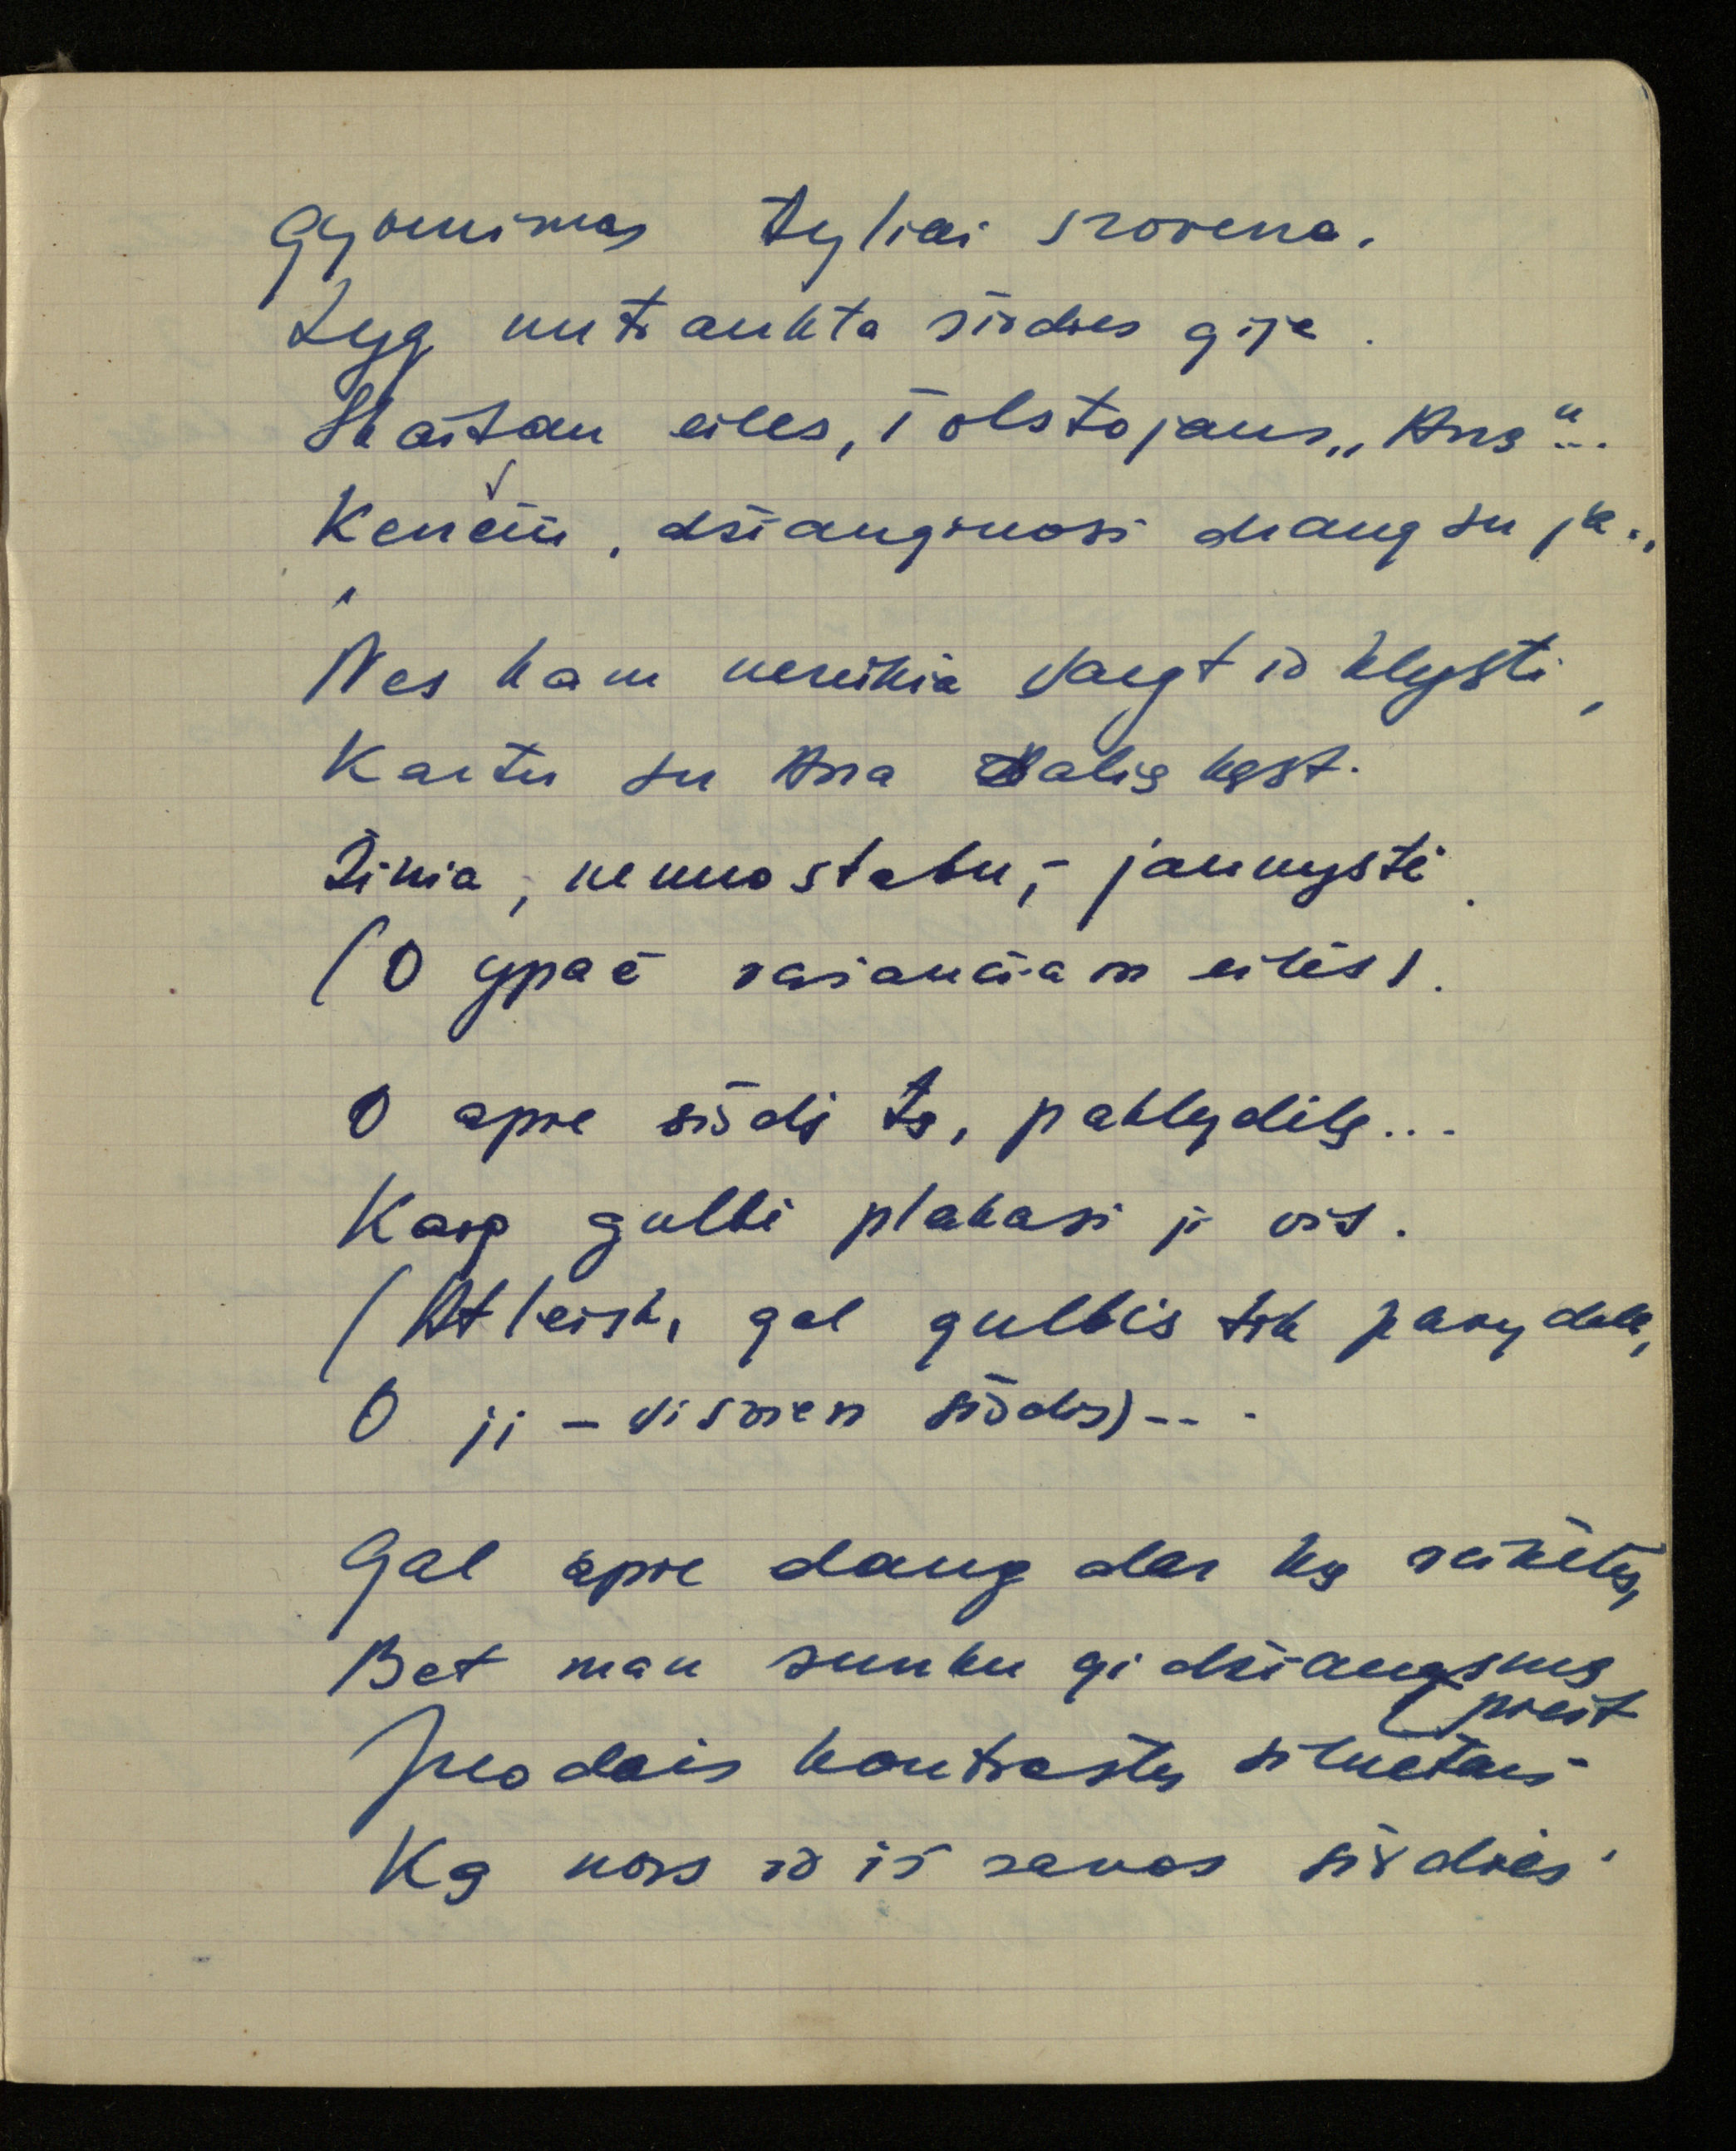 Gyvenimas tyliai srovena.
Lyg nutraukta širdies gija.
Skaitau eiles, Tolstojaus „Aną“...
Kenčiu, džiaugiuosi draug su ja..
Nes kam nereikia vargt ir klysti,
Kartu su Ana dalią kęst.
Žinia, nenuostabu, – jaunystė.
(O ypač rašančiam eilės).
O apie širdį tą, paklydėlę...
Kaip gulbė plakasi ji vis.
(Atleisk, gal gulbės tik pavydėlę,
O ji – visvien širdis)...
Gal apie daug dar ką reikėtų,
Bet man sunku gi džiaugsmą
prieit
Juodais kontrastų siluetais
Ką nors ir iš savos širdies.